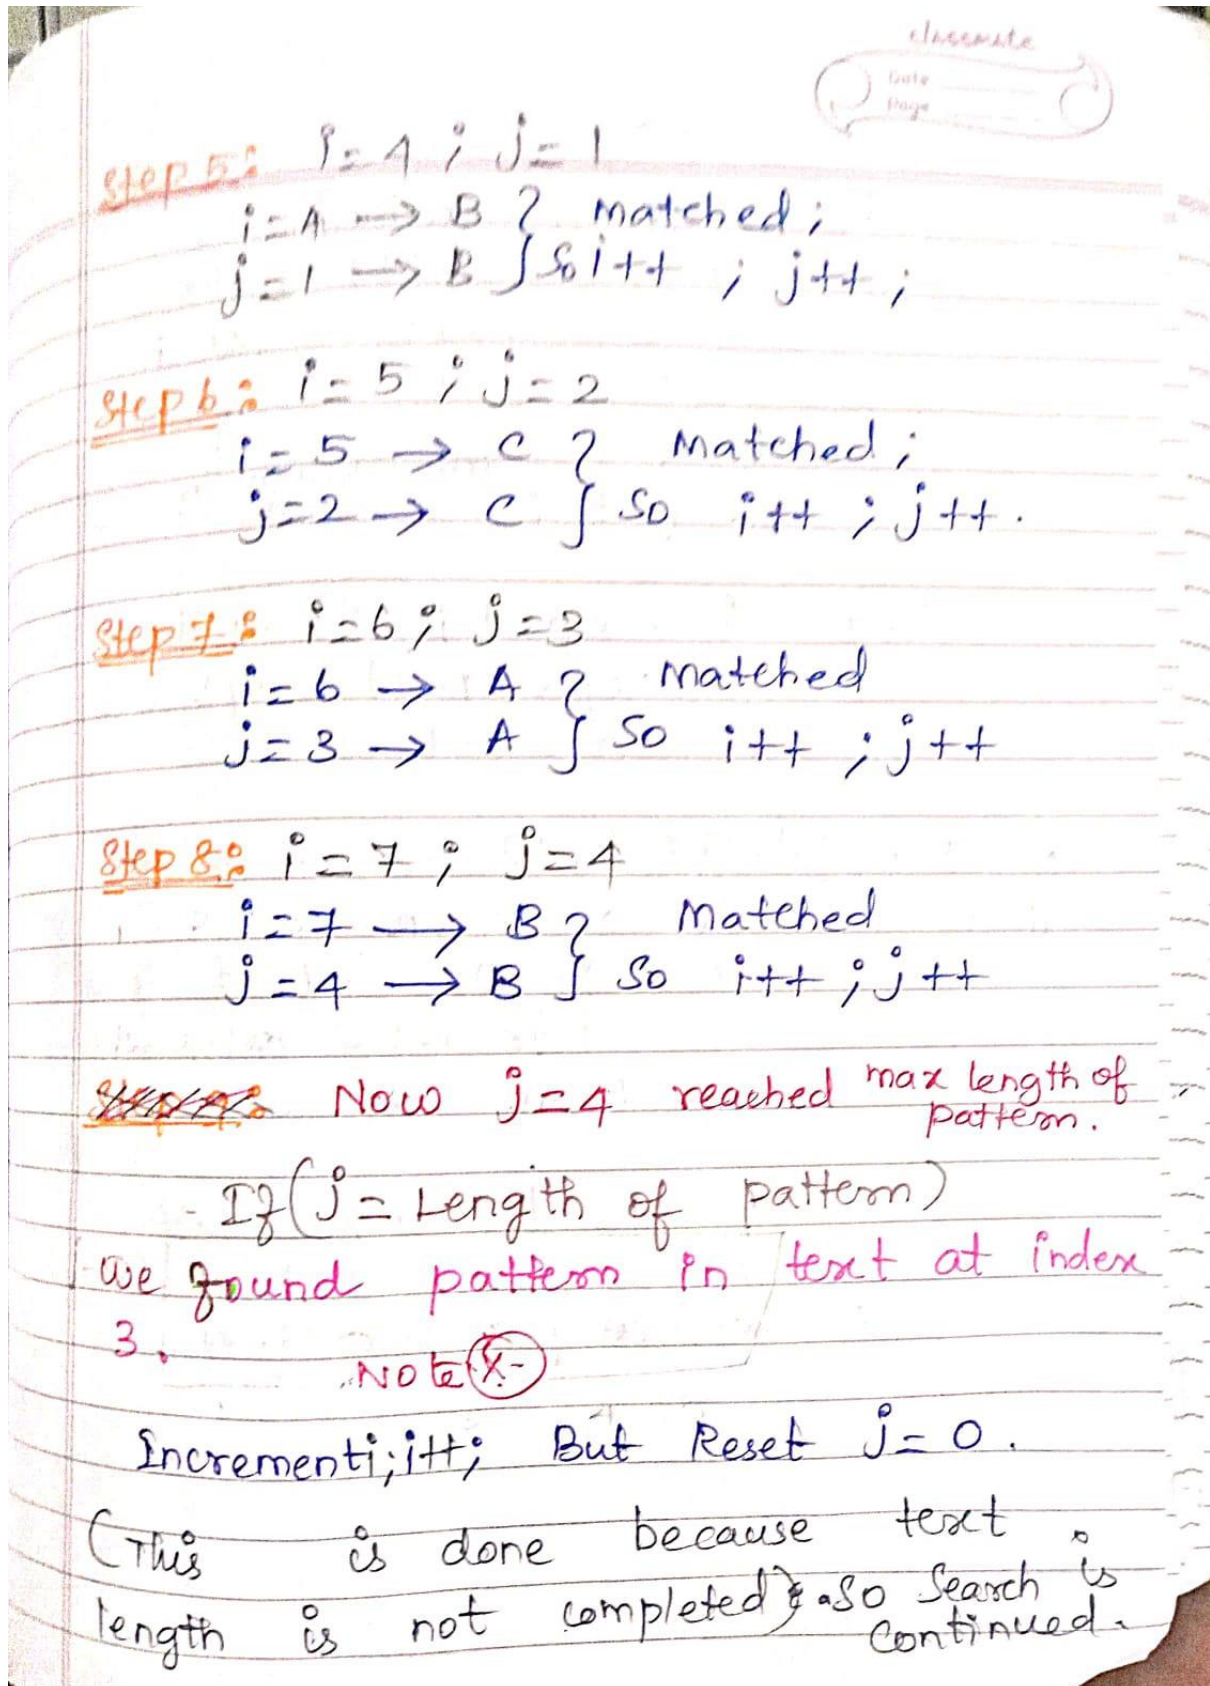 classmate
Date
Page
Step 5: i=4 ; j=1
i=4 → B } matched ;
j=1 → B } So i++ ; j++ ;
Step 6: i=5 ; j=2
i=5 → C } Matched ;
j=2 → C } So i++ ; j++.
Step 7: i=6 ; j=3
i=6 → A } matched
j=3 → A } So i++ ; j++
Step 8: i=7 ; j=4
i=7 → B } Matched
j=4 → B } So i++ ; j++
Now j=4 reached max length of
pattern.
If (j = Length of pattern)
we found pattern in text at index
3.
Note
Increment i; i++; But Reset j=0.
(This is done because text
length is not completed} so Search is
continued.